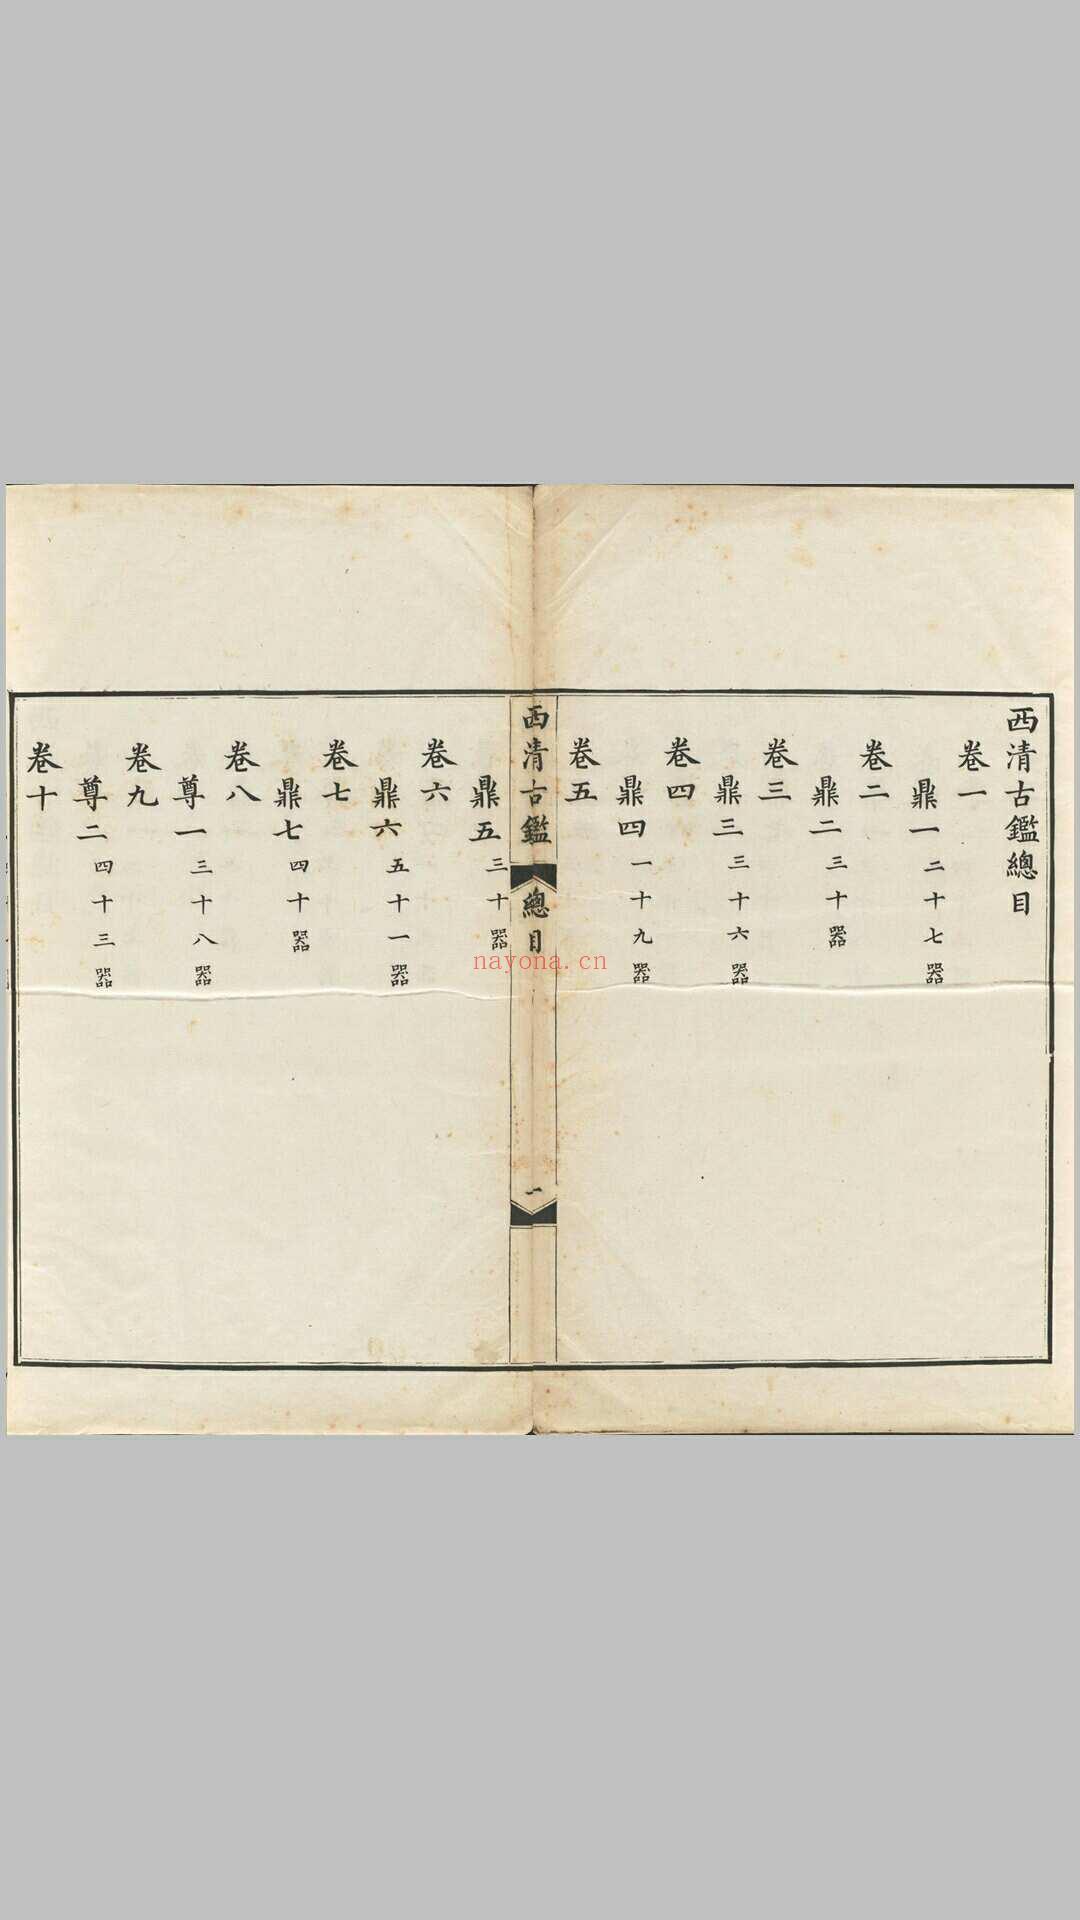 西清古鑑總目
卷一
鼎一 二十七器
卷二
鼎二 三十器
卷三
鼎三 三十六器
卷四
鼎四 一十九器
卷五
西清古鑑 總目 一
鼎五 三十器
卷六
鼎六 五十一器
卷七
鼎七 四十器
卷八
尊一 三十八器
卷九
尊二 四十三器
卷十
nayona.cn